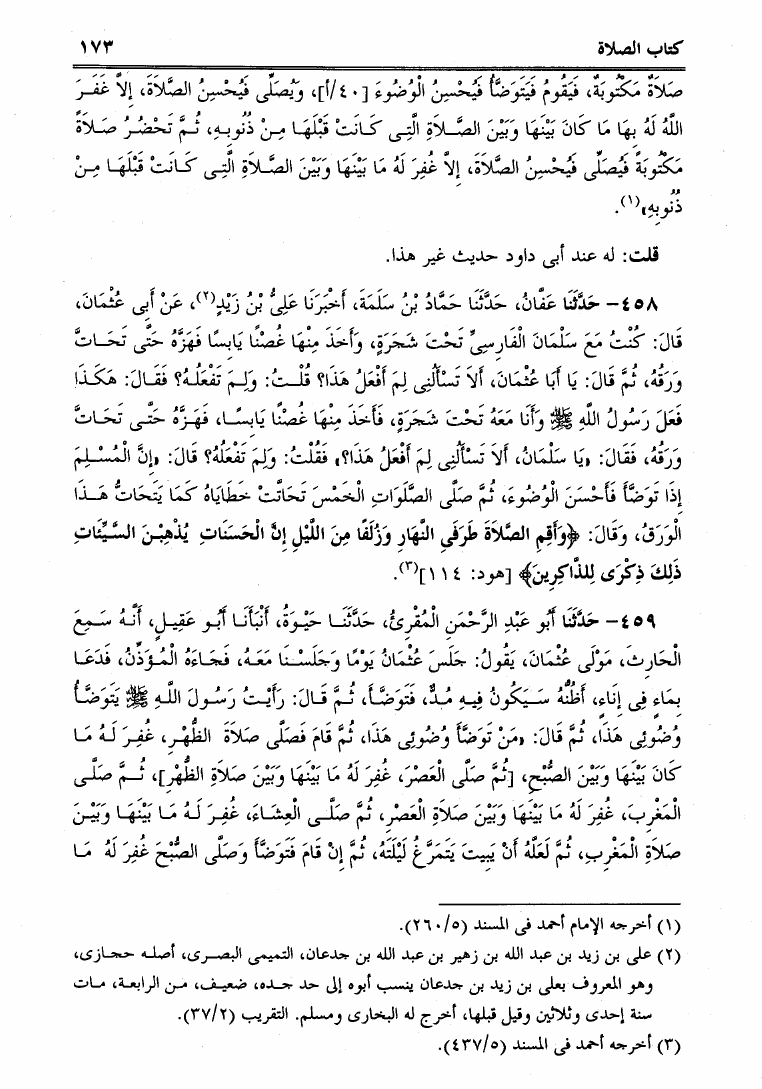 كتاب الصلاة ١٧٣
صَلاَةٌ مَكْتُوبَةٌ، فَيَقُومُ فَيَتَوَضَّأُ فَيُحْسِنُ الْوُضُوءَ [٤٠/أ]، وَيُصَلِّى فَيُحْسِنُ الصَّلاَةَ، إِلاَّ غَفَرَ
اللَّهُ لَهُ بِهَا مَا كَانَ بَيْنَهَا وَبَيْنَ الصَّلاَةِ الَّتِى كَانَتْ قَبْلَهَا مِنْ ذُنُوبِهِ، ثُمَّ تَحْضُرُ صَلاَةٌ
مَكْتُوبَةٌ فَيُصَلِّى فَيُحْسِنُ الصَّلاَةَ، إِلاَّ غُفِرَ لَهُ مَا بَيْنَهَا وَبَيْنَ الصَّلاَةِ الَّتِى كَانَتْ قَبْلَهَا مِنْ
ذُنُوبِهِ»(١).
قلت: له عند أبى داود حديث غير هذا.
٤٥٨- حَدَّثَنَا عَفَّانُ، حَدَّثَنَا حَمَّادُ بْنُ سَلَمَةَ، أَخْبَرَنَا عَلِىُّ بْنُ زَيْدٍ(٢)، عَنْ أَبِى عُثْمَانَ،
قَالَ: كُنْتُ مَعَ سَلْمَانَ الْفَارِسِىِّ تَحْتَ شَجَرَةٍ، وَأَخَذَ مِنْهَا غُصْنًا يَابِسًا فَهَزَّهُ حَتَّى تَحَاتَّ
وَرَقُهُ، ثُمَّ قَالَ: يَا أَبَا عُثْمَانَ، أَلاَ تَسْأَلُنِى لِمَ أَفْعَلُ هَذَا؟ قُلْتُ: وَلِمَ تَفْعَلُهُ؟ فَقَالَ: هَكَذَا
فَعَلَ رَسُولُ اللَّهِ ﷺ وَأَنَا مَعَهُ تَحْتَ شَجَرَةٍ، فَأَخَذَ مِنْهَا غُصْنًا يَابِسًا، فَهَزَّهُ حَتَّى تَحَاتَّ
وَرَقُهُ، فَقَالَ: «يَا سَلْمَانُ، أَلاَ تَسْأَلُنِى لِمَ أَفْعَلُ هَذَا؟» فَقُلْتُ: وَلِمَ تَفْعَلُهُ؟ قَالَ: «إِنَّ الْمُسْلِمَ
إِذَا تَوَضَّأَ فَأَحْسَنَ الْوُضُوءَ، ثُمَّ صَلَّى الصَّلَوَاتِ الْخَمْسَ تَحَاتَّتْ خَطَايَاهُ كَمَا يَتَحَاتُّ هَذَا
الْوَرَقُ، وَقَالَ: ﴿وَأَقِمِ الصَّلاَةَ طَرَفَىِ النَّهَارِ وَزُلَفًا مِنَ اللَّيْلِ إِنَّ الْحَسَنَاتِ يُذْهِبْنَ السَّيِّئَاتِ
ذَلِكَ ذِكْرَى لِلذَّاكِرِينَ﴾ [هود: ١١٤](٣).
٤٥٩- حَدَّثَنَا أَبُو عَبْدِ الرَّحْمَنِ الْمُقْرِئُ، حَدَّثَنَا حَيْوَةُ، أَنْبَأَنَا أَبُو عَقِيلٍ، أَنَّهُ سَمِعَ
الْحَارِثَ، مَوْلَى عُثْمَانَ، يَقُولُ: جَلَسَ عُثْمَانُ يَوْمًا وَجَلَسْنَا مَعَهُ، فَجَاءَهُ الْمُؤَذِّنُ، فَدَعَا
بِمَاءٍ فِى إِنَاءٍ، أَظُنُّهُ سَيَكُونُ فِيهِ مُدٌّ، فَتَوَضَّأَ، ثُمَّ قَالَ: رَأَيْتُ رَسُولَ اللَّهِ ﷺ يَتَوَضَّأُ
وُضُوئِى هَذَا، ثُمَّ قَالَ: «مَنْ تَوَضَّأَ وُضُوئِى هَذَا، ثُمَّ قَامَ فَصَلَّى صَلاَةَ الظُّهْرِ، غُفِرَ لَهُ مَا
كَانَ بَيْنَهَا وَبَيْنَ الصُّبْحِ، [ثُمَّ صَلَّى الْعَصْرَ، غُفِرَ لَهُ مَا بَيْنَهَا وَبَيْنَ صَلاَةِ الظُّهْرِ]، ثُمَّ صَلَّى
الْمَغْرِبَ، غُفِرَ لَهُ مَا بَيْنَهَا وَبَيْنَ صَلاَةِ الْعَصْرِ، ثُمَّ صَلَّى الْعِشَاءَ، غُفِرَ لَهُ مَا بَيْنَهَا وَبَيْنَ
صَلاَةِ الْمَغْرِبِ، ثُمَّ لَعَلَّهُ أَنْ يَبِيتَ يَتَمَرَّغُ لَيْلَتَهُ، ثُمَّ إِنْ قَامَ فَتَوَضَّأَ وَصَلَّى الصُّبْحَ غُفِرَ لَهُ مَا
(١) أخرجه الإمام أحمد فى المسند (٢٦٠/٥).
(٢) على بن زيد بن عبد الله بن زهير بن عبد الله بن جدعان، التميمى البصرى، أصله حجازى،
وهو المعروف بعلى بن زيد بن جدعان ينسب أبوه إلى حد جده، ضعيف، من الرابعة، مات
سنة إحدى وثلاثين وقيل قبلها، أخرج له البخارى ومسلم. التقريب (٣٧/٢).
(٣) أخرجه أحمد فى المسند (٤٣٧/٥).